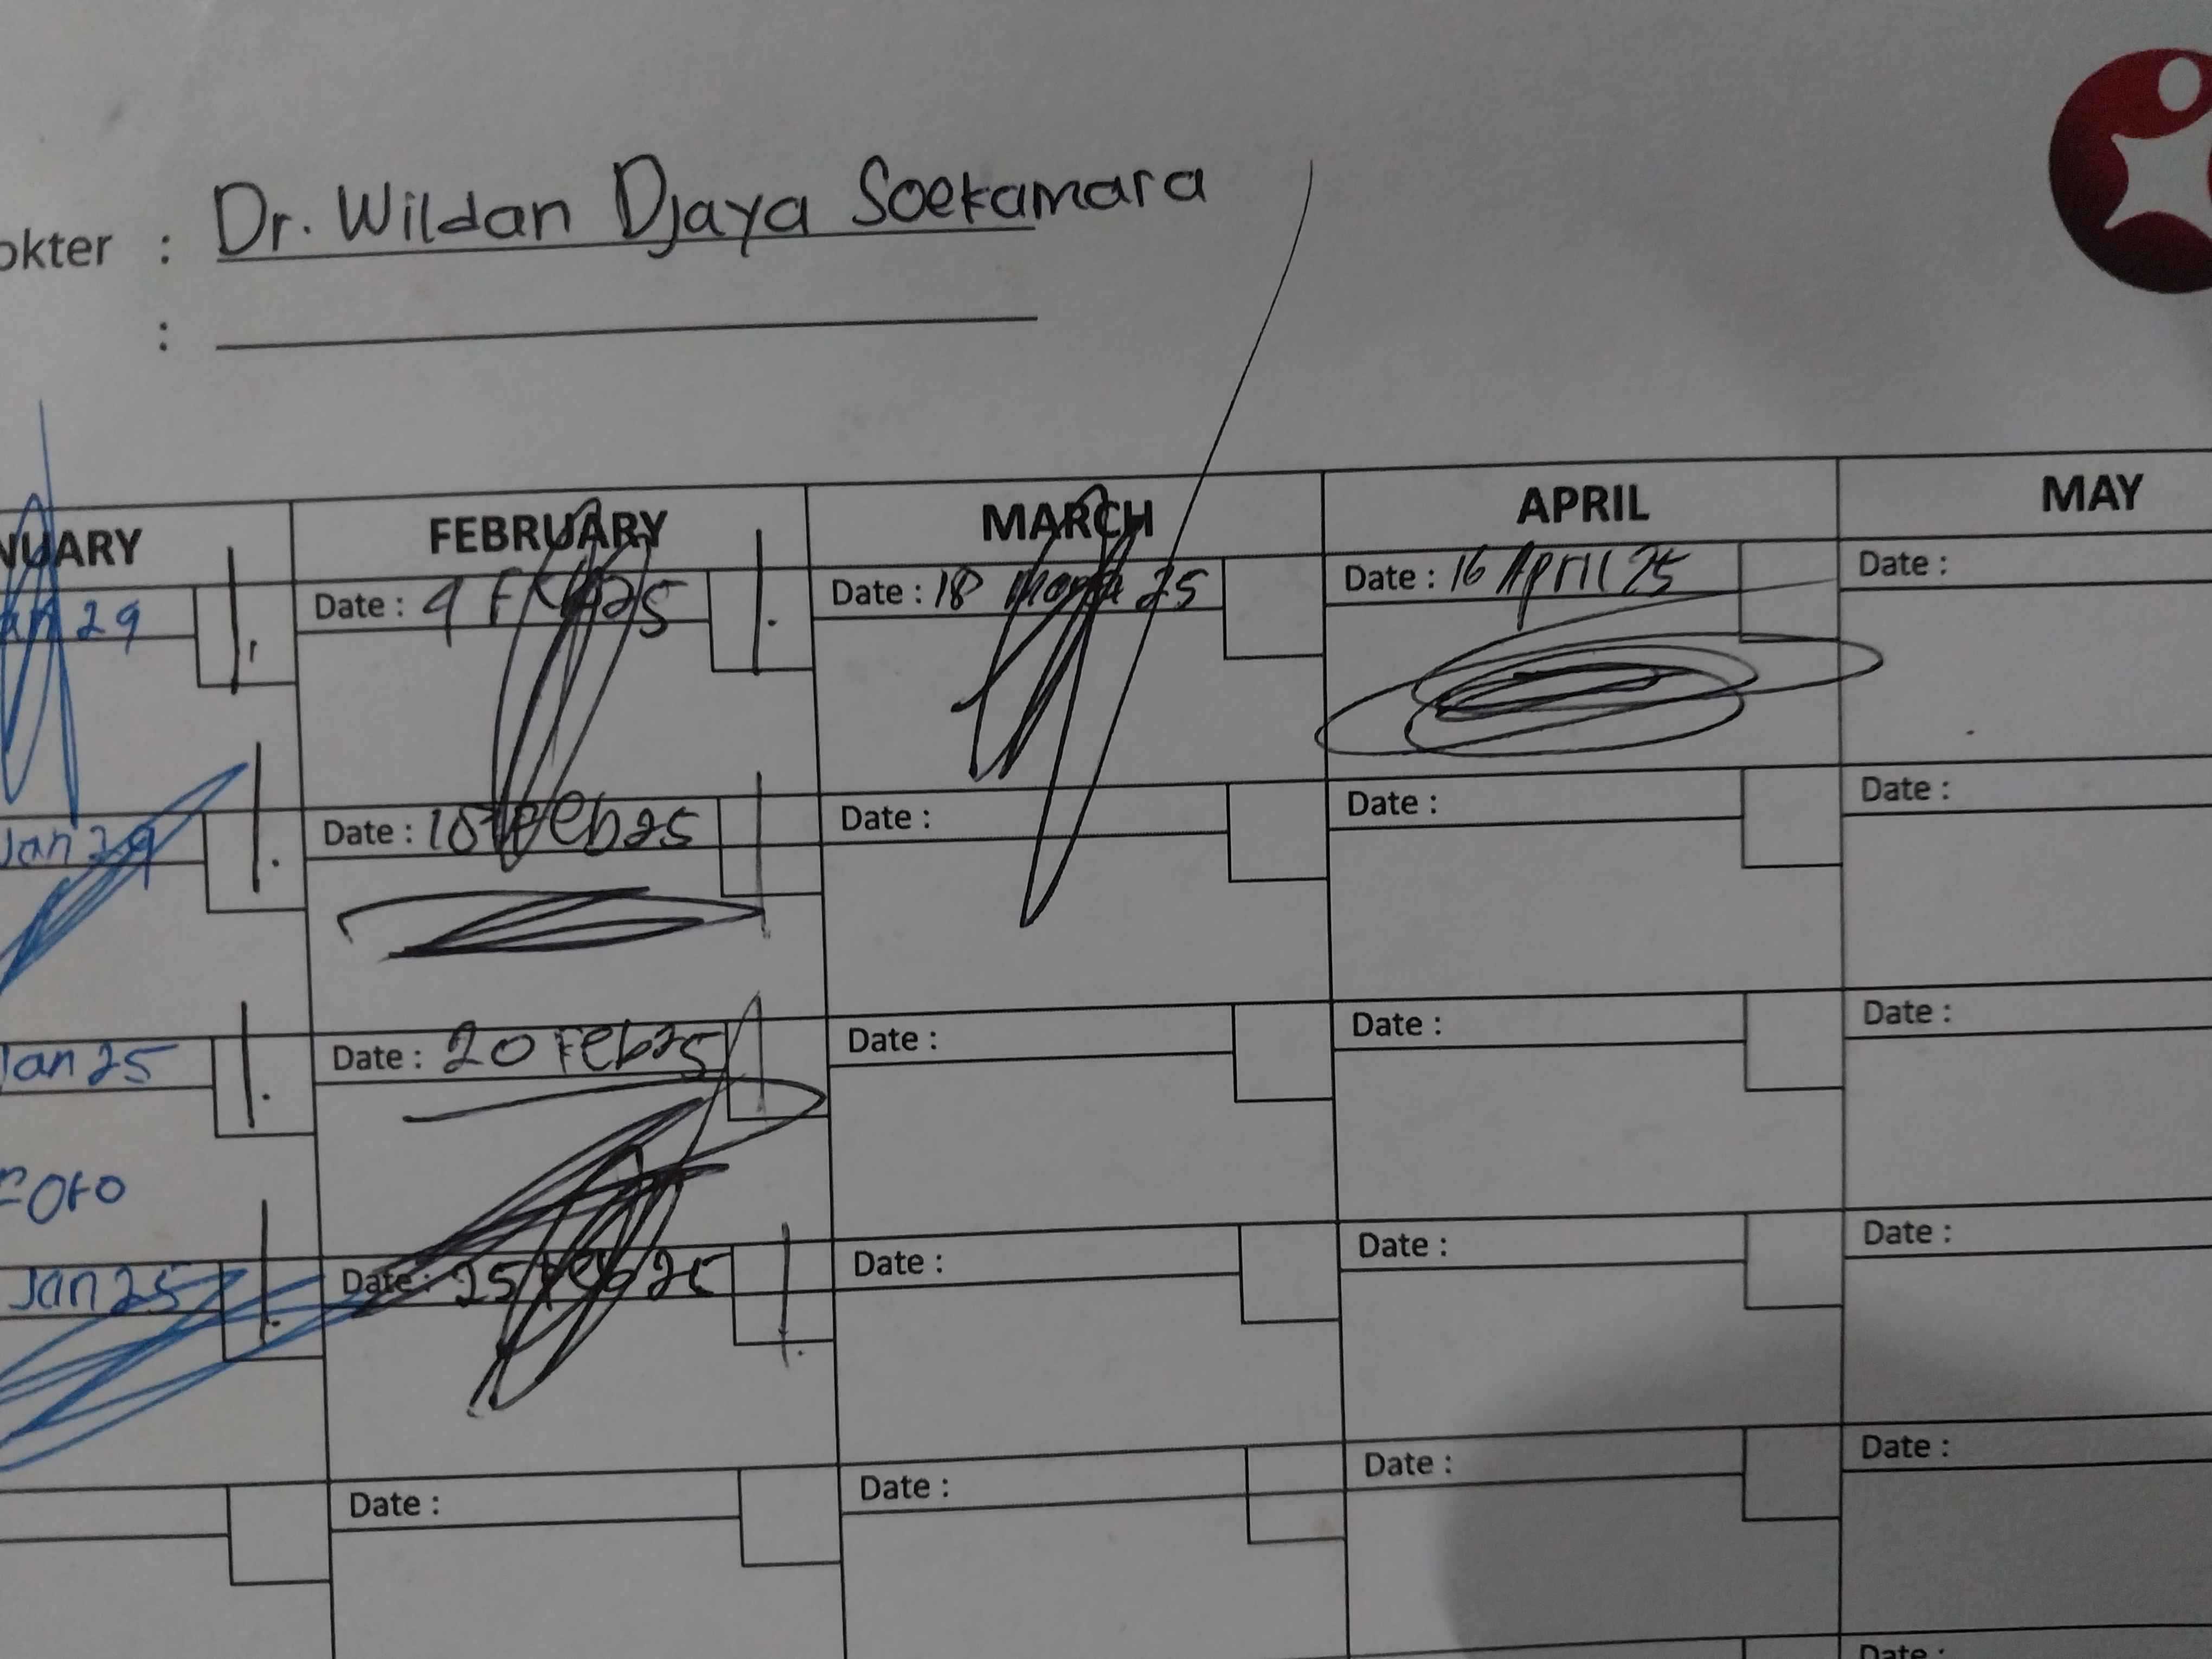 okter : Dr. Wildan Djaya Soekamara
:
NUARY FEBRUARY MARCH APRIL MAY
29 Date : 4 25 Date : 18 25 Date : 16 April 25 Date :
Jan 29 Date : Feb 25 Date : Date : Date :
Jan 25 Date : 20 Feb 25 Date : Date : Date :
Foto
Jan 25 Date : 25 Feb 25 Date : Date : Date :
Date : Date : Date : Date :
Date :